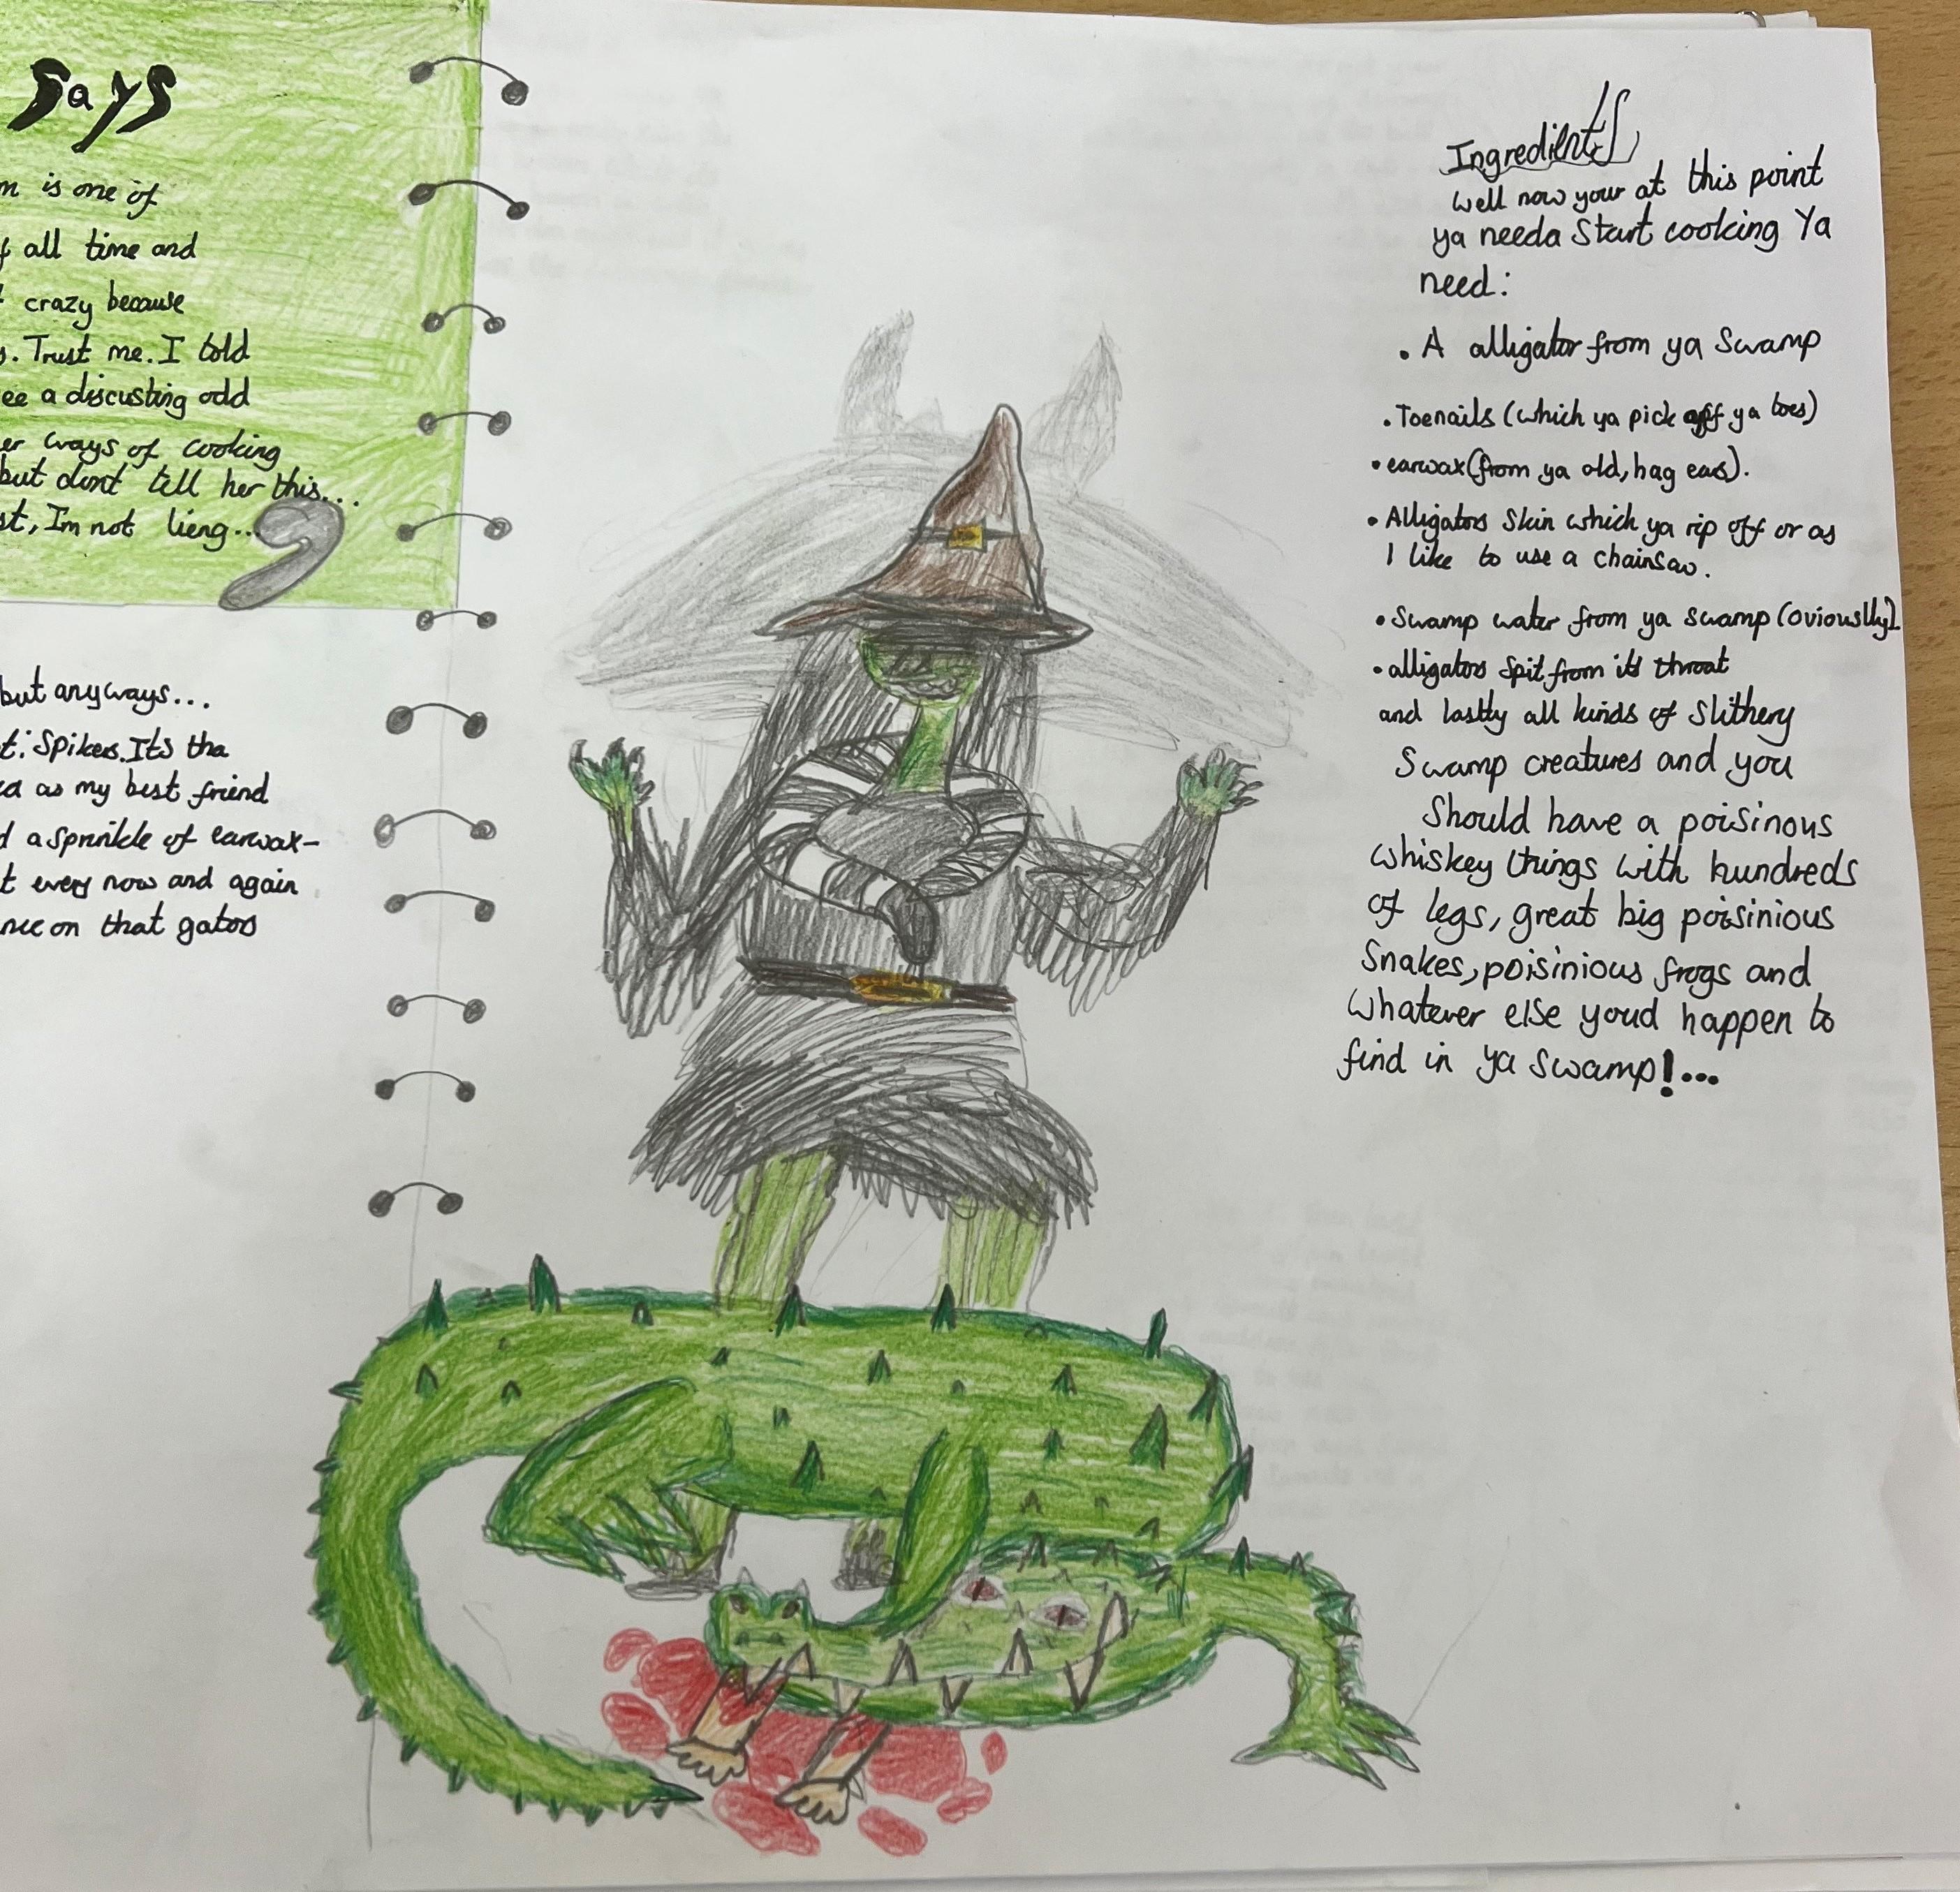 says
is one of
all time and
crazy because
. Trust me. I told
ee a discusting odd
er ways of cooking
but dont tell her this...
st, Im not lieng...
but anyways...
t: Spikes. Its tha
a as my best friend
d a sprinkle of earwax-
t every now and again
nce on that gators
Ingredients
Well now your at this point
ya needa Start cooking Ya
need:
• A alligator from ya Swamp
• Toenails (which ya pick off ya toes)
• earwax (from ya old, hag ears).
• Alligators Skin which ya rip off or as
I like to use a chainsaw.
• Swamp water from ya swamp (oviouslly).
• alligators spit from its throat
and lastly all kinds of Slithery
Swamp creatures and you
Should have a poisinous
whiskey things with hundreds
of legs, great big poisinious
Snakes, poisinious frogs and
whatever else youd happen to
find in ya swamp!...